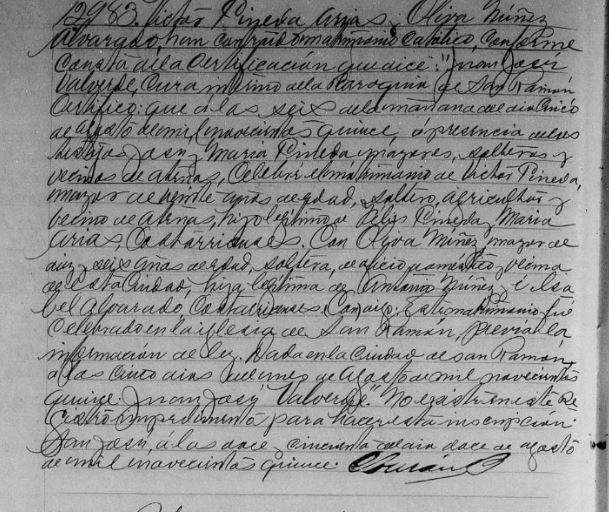 12983. Victor Pineda Arias y Oliva Núñez
Alvarado, han contraido matrimonio Católico, conforme
consta de la Certificación que dice: "Juan José
Valverde, Cura interino de la Parroquia de San Ramón
Certifico: que a las seis de la mañana del dia cinco
de agosto de mil novecientos quince, a presencia de los
testigos José y María Pineda mayores, solteros y
vecinos de Atenas, Celebré el matrimonio de Victor Pineda,
mayor de veinte años de edad, soltero, agricultor y
vecino de Atenas, hijo legitimo de Pineda y Maria
Arias, Costarricenses. Con Oliva Núñez, mayor de
diez y seis años de edad, soltera, de oficio domestico, vecina
de esta Ciudad, hija legitima de Antonio Núñez e Isa
bel Alvarado, Costarricenses. Este matrimonio fué
Celebrado en la iglesia de San Ramón, previa la
información de ley. Dada en la Ciudad de San Ramón,
a los cinco dias del mes de Agosto de mil novecientos
quince. Juan José Valverde." No existe en este Re
gistro impedimento para hacer esta inscripción.
San José, a las doce y cincuenta del dia doce de agosto
de mil novecientos quince.